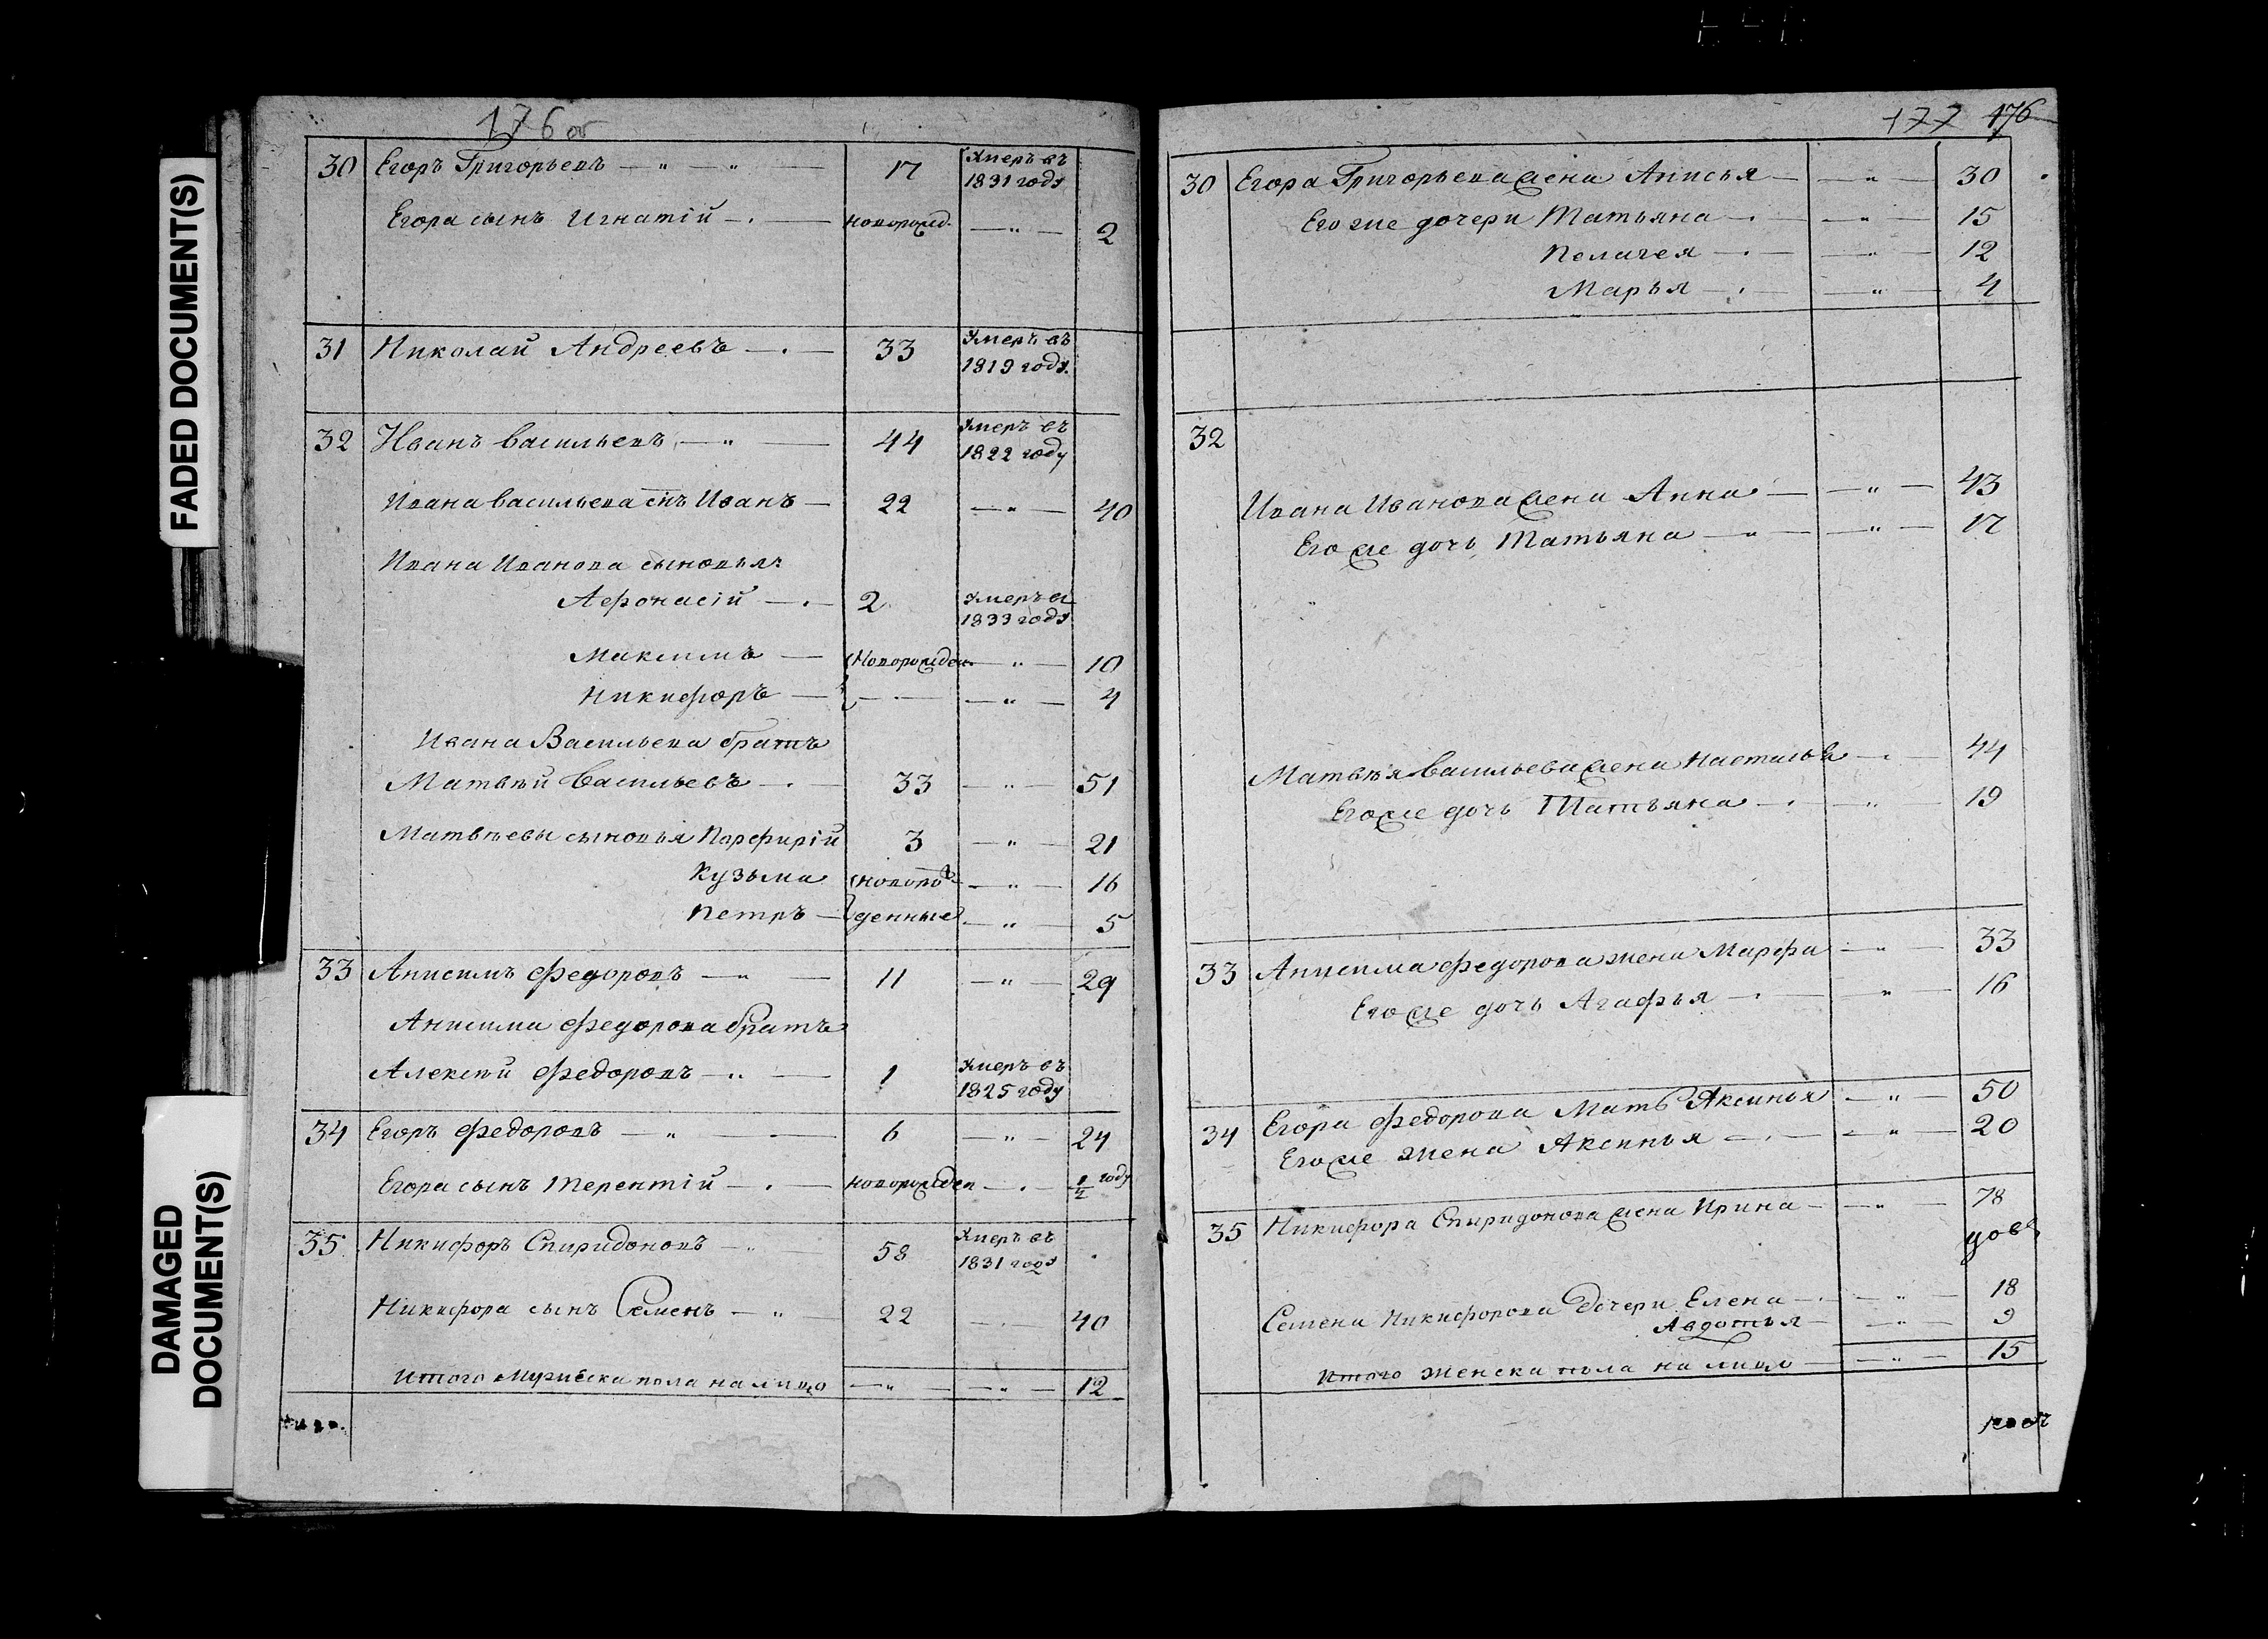 FADED DOCUMENT(S)
DAMAGED
DOCUMENT(S)
176 об
30 Егоръ Григорьевъ — „ — „ — 17 Умеръ въ
1831 году
Егора сынъ Игнатій — . — новорожд. — „ — 2
31 Николай Андреевъ — . — 33 Умеръ въ
1819 году.
32 Иванъ Васильевъ — „ — 44 Умеръ въ
1822 году
Ивана Васильева снъ Иванъ — 22 — „ — 40
Ивана Иванова сыновья:
Афонасій — . — 2 Умеръ въ
1833 году
Максимъ — Новорожден. — „ — 10
Никифоръ — — . — — „ — 4
Ивана Васильева братъ
Матвѣй Васильевъ — . — 33 — „ — 51
Матвѣевы сыновья Парфирій 3 — „ — 21
Кузьма (новорож — „ — 16
Петръ — денные — „ — 5
33 Анисимъ Федоровъ — „ — 11 — „ — 29
Анисима Федорова братъ
Алексѣй Федоровъ — „ — 1 Умеръ въ
1825 году
34 Егоръ Федоровъ — „ — 6 — „ — 24
Егора сынъ Терентій — . — новорожден — . — 1/2 году
35 Никифоръ Спиридоновъ — „ 58 Умеръ въ
1831 году
Никифора сынъ Семенъ — „ — 22 — . — 40
Итого мужеска пола на лицо — „ — — „ — 12
177 176
30 Егора Григорьева жена Анисья — — „ — 30
Его же дочери Татьяна — . — — „ — 15
Пелагея — . — — „ — 12
Марья — . — — „ — 4
32
Ивана Иванова жена Анна — — „ — 43
Его же дочь Татьяна — „ — — „ — 17
Матвѣя Васильева жена Настасья — . — 44
Его же дочь Татьяна — . — „ — 19
33 Анисима Федорова жена Марфа — „ — 33
Его же дочь Агафья — . — „ — 16
34 Егора Федорова Мать Аксинья — „ — 50
Его же жена Аксинья — . — — „ — 20
35 Никифора Спиридонова жена Ирина — — „ — 78
Семена Никифорова дочери Елена — . — „ — 18
Авдотья — — „ — 9
Итого женска пола на лицо — — „ — 15